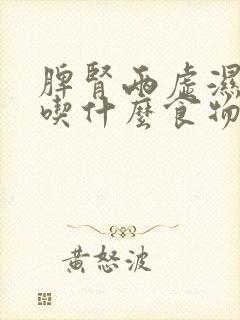 脾腎兩虛濕
喫什麼食物
黃怒波